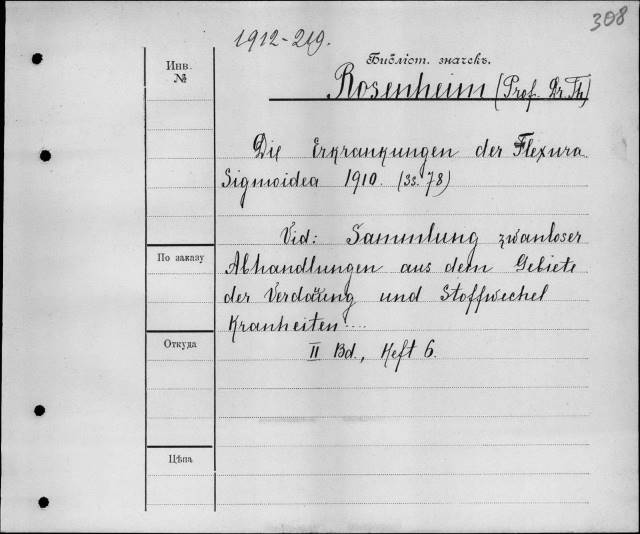 308
1912-219.
Библіот. значекъ.
Инв.
№
Rosenheim (Prof. Dr. Th)
Die Erkrankungen der Flexura
Sigmoidea 1910. (Ss. 78)
Vid: Sammlung zwanloser
По заказу
Abhandlungen aus dem Gebiete
der Verdaung und Stoffwechel
Kranheiten....
Откуда
II Bd., Heft 6.
Цѣна